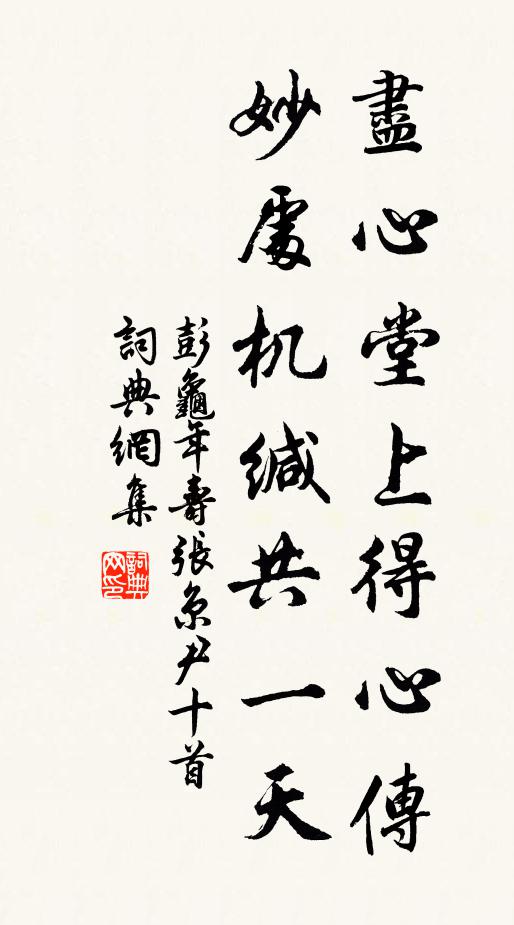 盡心堂上得心傳
妙處机緘共一天
彭龜年壽張京尹十首
詞典網集
詞典网印